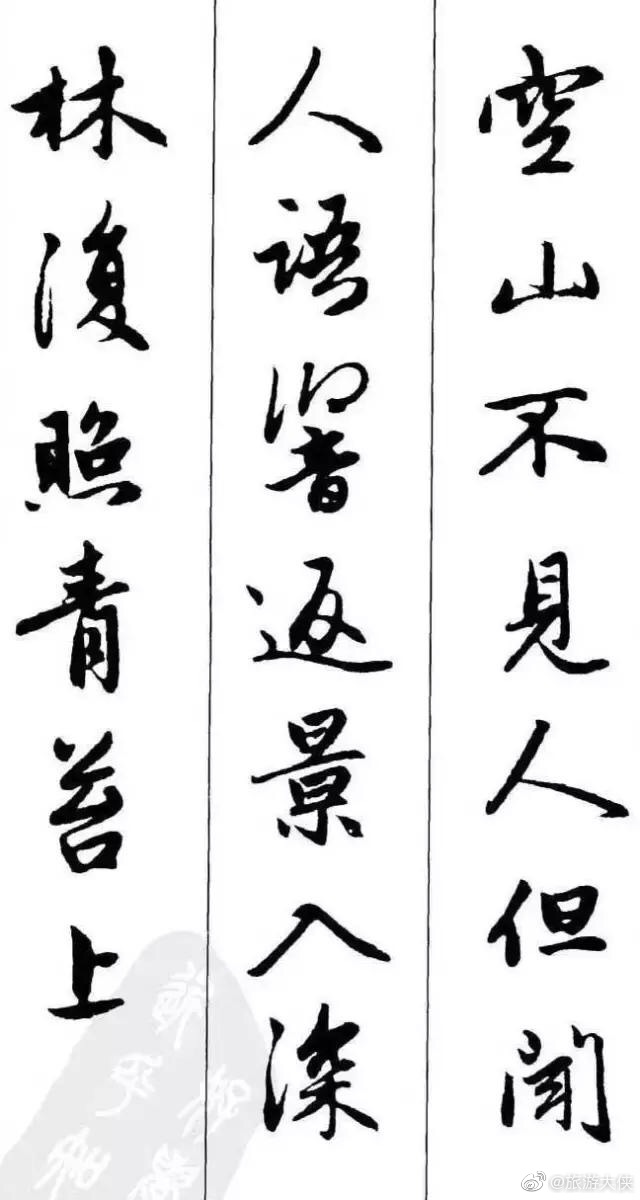 空山不見人但聞
人語響返景入深
林復照青苔上
@旅游大侠